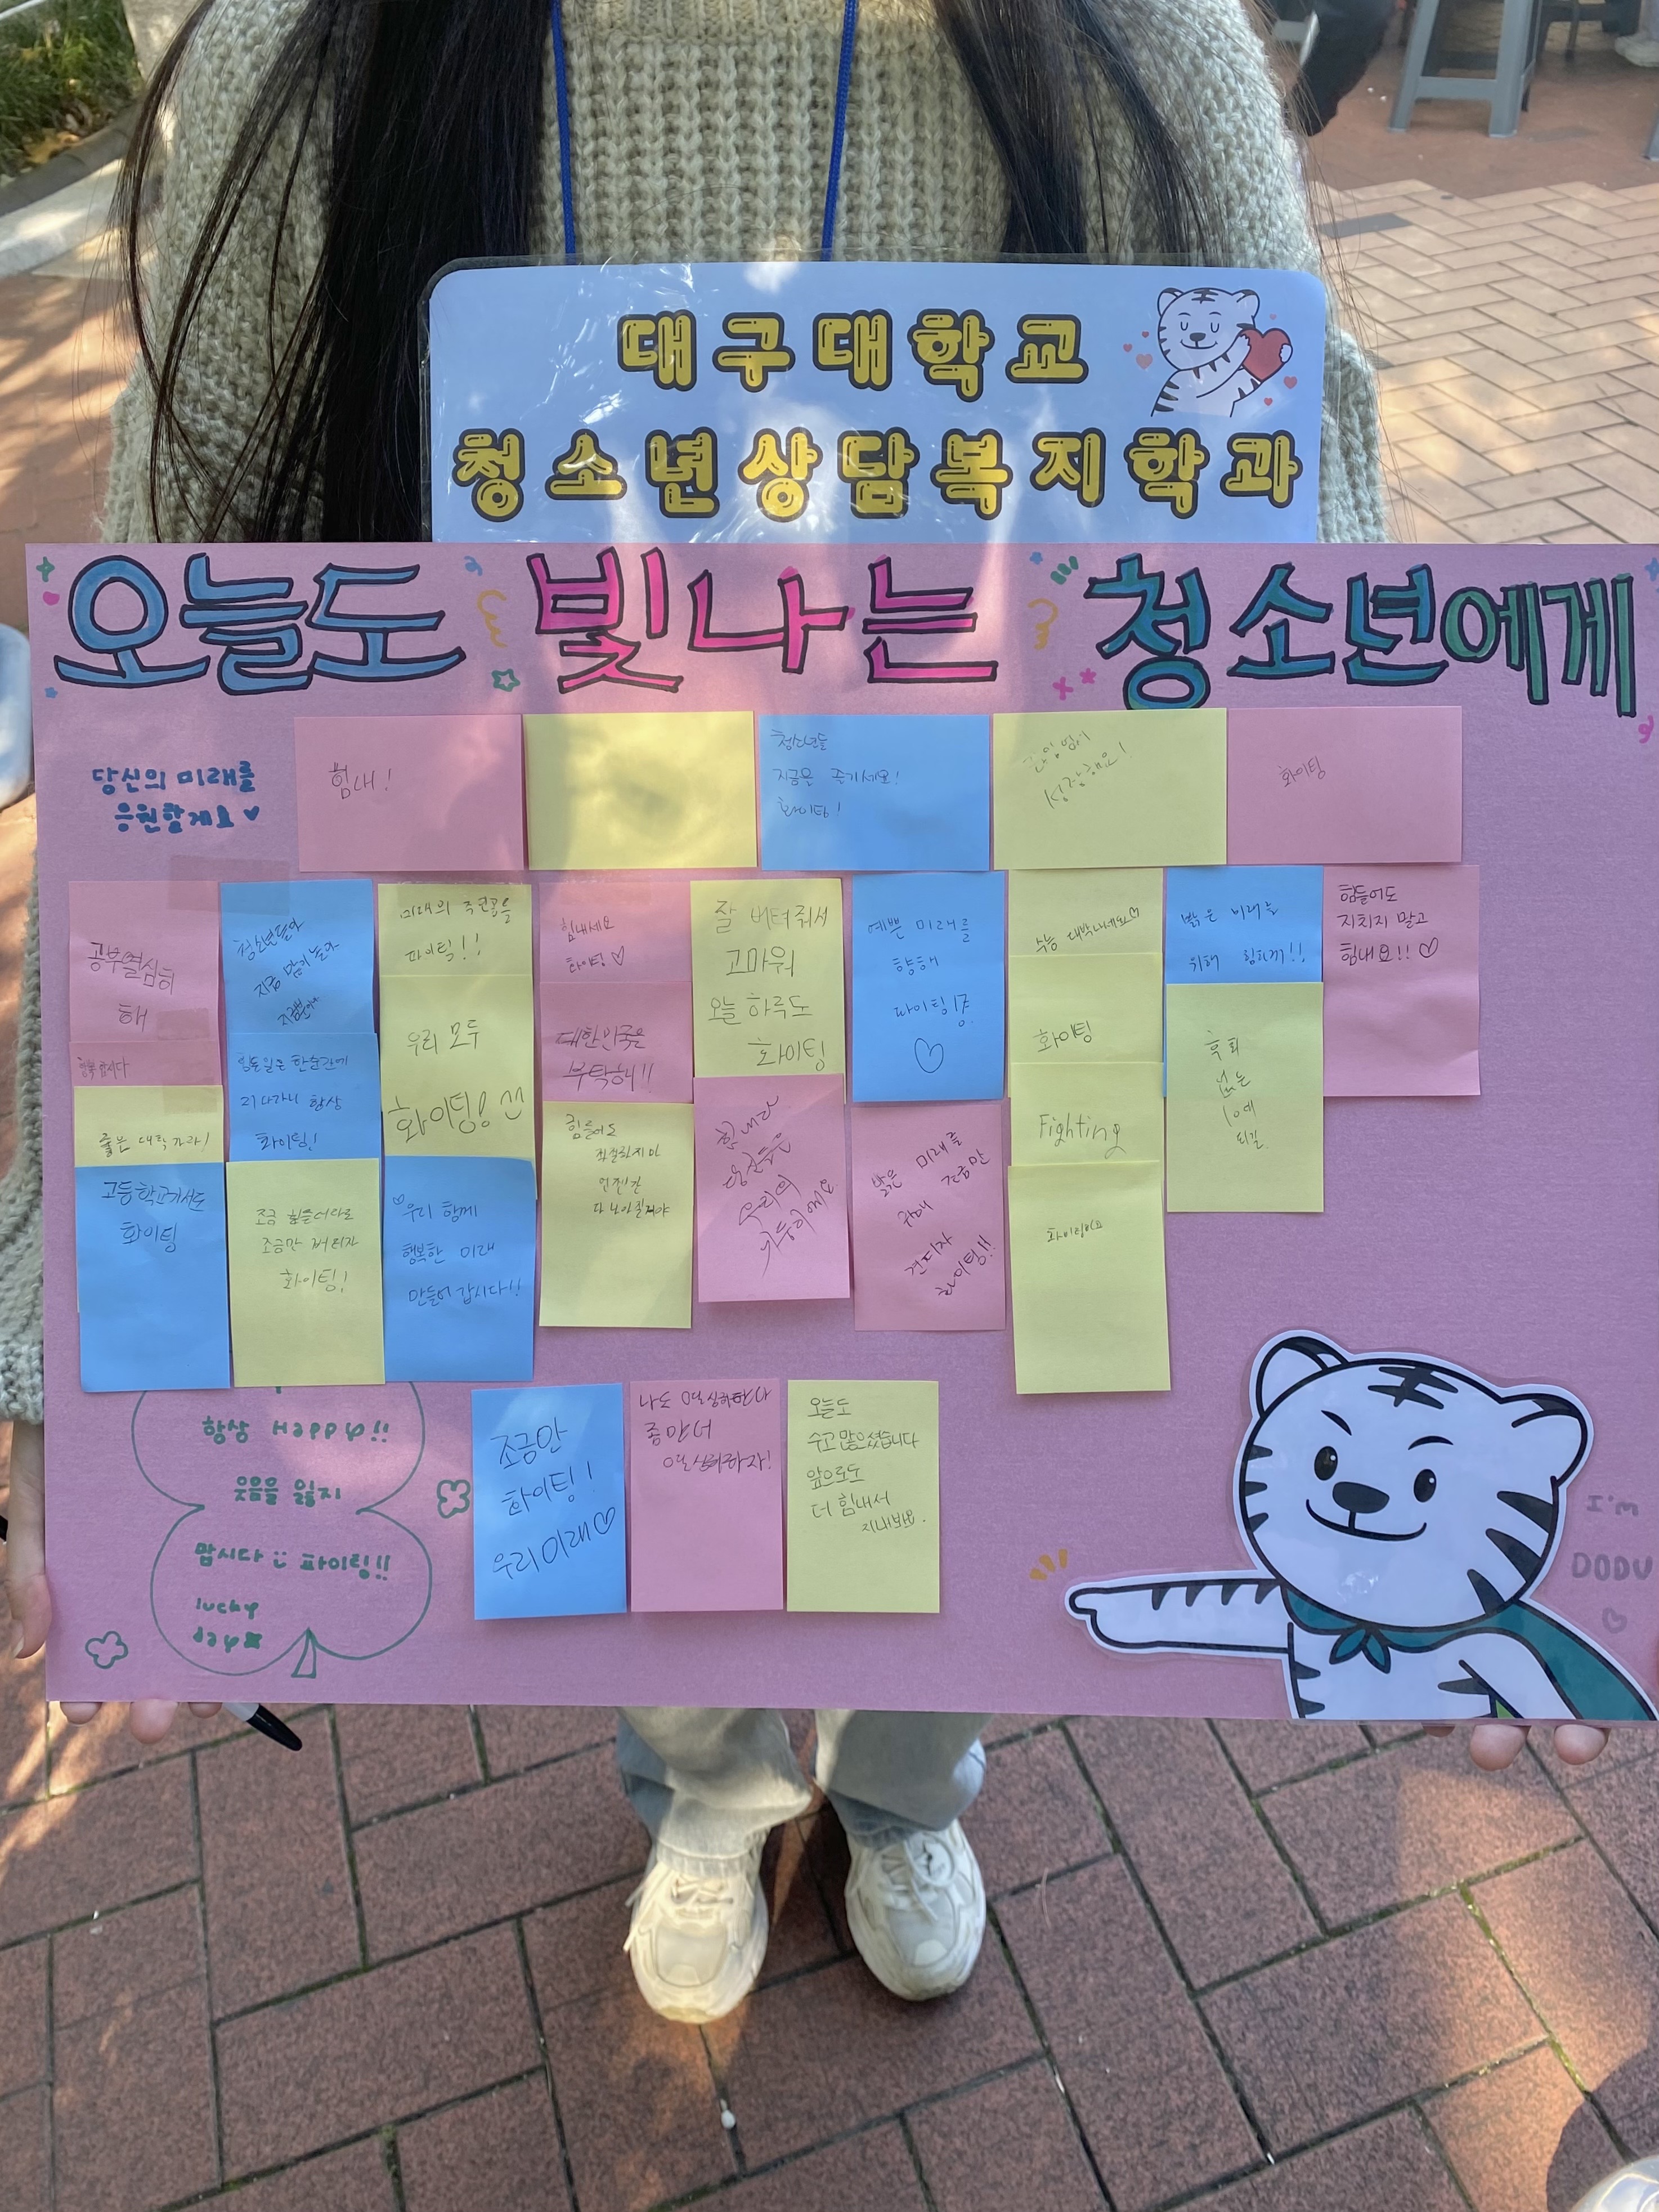 대구대학교
청소년상담복지학과
오늘도 빛나는 청소년에게
당신의 미래를
응원할게요
힘내!
청소년들
지금을 즐기세요!
화이팅!
끊임없이
성장해요!
화이팅
공부열심히
해
행복합시다
좋은 대학가라!
고등학교가서도
화이팅
청소년들아
지금 많이 놀아
지금뿐이야
힘든일은 한순간에
지나가니 항상
화이팅!
조금 힘들더라도
조금만 버티자
화이팅!
미래의 주인공들
파이팅!!
우리 모두
화이팅!
우리 함께
행복한 미래
만들어 갑시다!!
힘내세요
화이팅
대한민국을
부탁해!!
힘들어도
좌절하지마
언젠간
다 나아질거야
잘 버텨줘서
고마워
오늘 하루도
화이팅
힘내라
당신들은
우리의
예쁜 미래를
향해
파이팅!
밝은 미래를
위해 조금만
견디자
화이팅!!
수능 대박나세요
화이팅
Fighting
화이팅이요
밝은 미래를
위해 힘내기!!
후회
없는
10대
되길
힘들어도
지치지 말고
힘내요!!
항상 Happy!!
웃음을 잃지
맙시다 파이팅!!
lucky
day
조금만
화이팅!
우리미래
나도 열심히한다
좀만더
열심히하자!
오늘도
수고 많으셨습니다
앞으로도
더 힘내서
지내봐요.
I'm
DODU